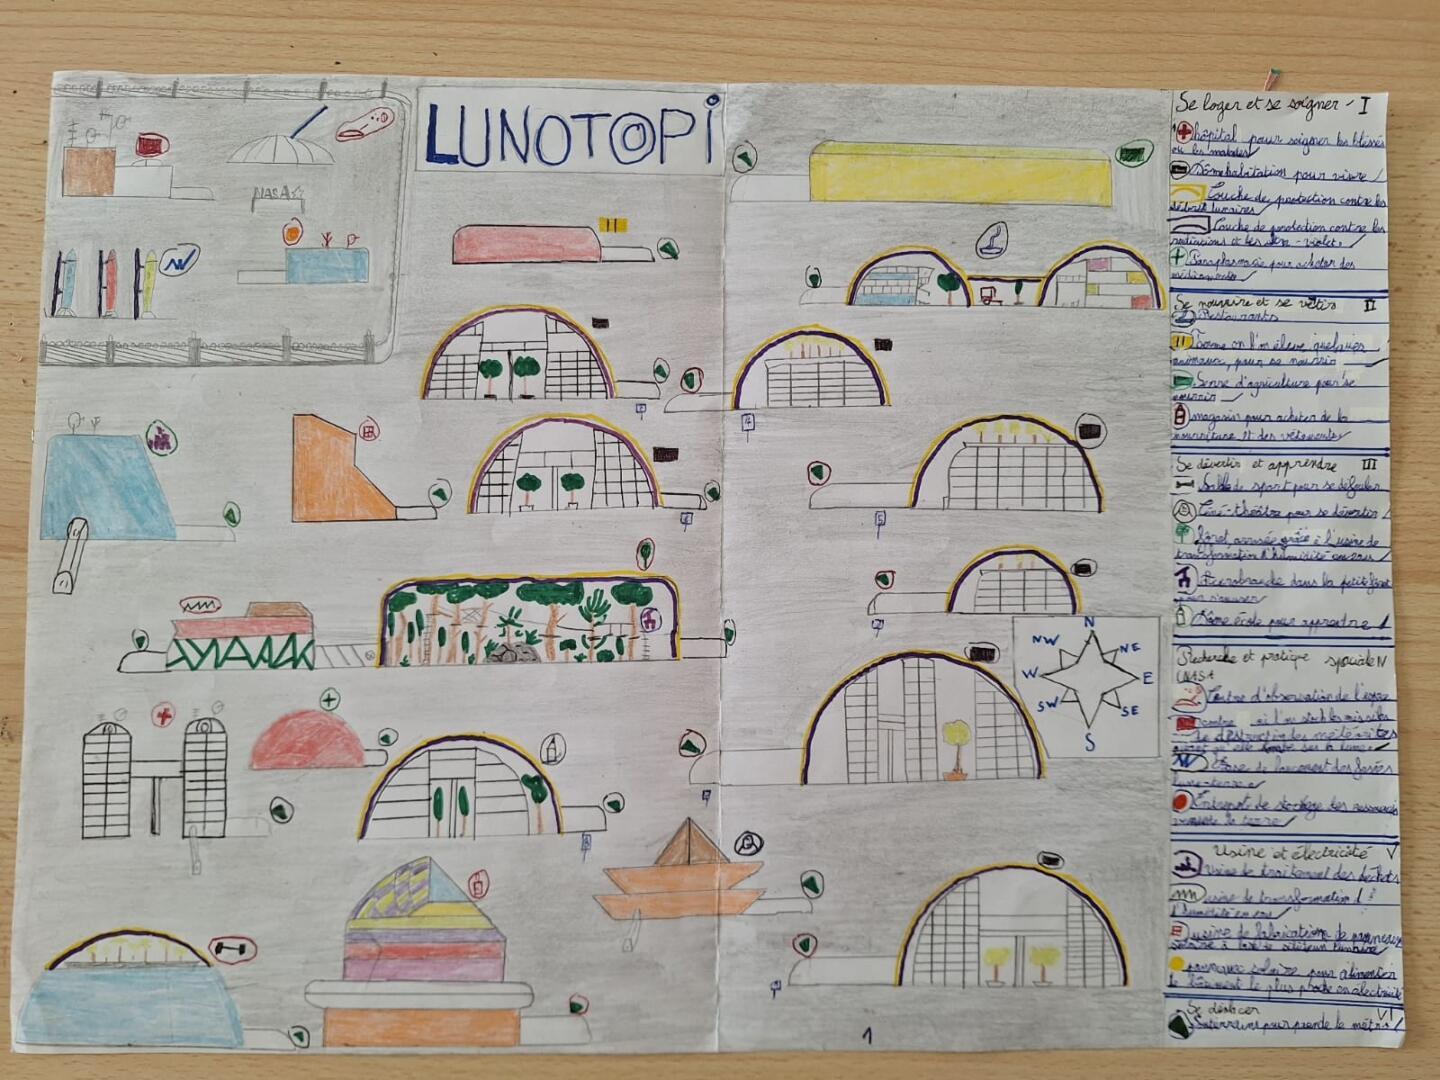 LUNOTOPI
NASA
N
NE
E
SE
S
SW
W
NW
1
Se loger et se soigner I
hôpital pour soigner les blessés
ou les malades
Dôme habitation pour vivre
Couche de protection contre les
débris lunaires
Couche de protection contre les
radiations et les ultra-violets
Parapharmacie pour acheter des
médicaments
Se nourrire et se vêtir II
Restaurants
Ferme où l'on élève quelques
animaux, pour se nourrir
Serre d'agriculture pour se
nourrir
magasin pour acheter de la
nourriture et des vêtements
Se divertir et apprendre III
Salle de sport pour se défouler
Ciné-théâtre pour se divertir
forêt arrosée grâce à l'usine de
transformation d'humidité en eau
Accrobranche dans la petite forêt
pour s'amuser
Dôme école pour apprendre
Recherche et pratique spaciale IV
NASA
Centre d'observation de l'espace
centre où l'on stock les missiles
de destruction des météorites
avant qu'elle tombe sur la lune
Base de lancement des fusées
lune-terre
Entrepot de stockage des ressources
la terre
Usine et électricité V
Usine de traitement des déchets
usine de transformation d
l'humidité en eau
usine de fabrication de panneaux
solaire à base de silicium lunaire
panneaux solaire pour alimenter
le bâtiment le plus proche en électricité
Se déplacer VI
Souterrains pour prendre le métro